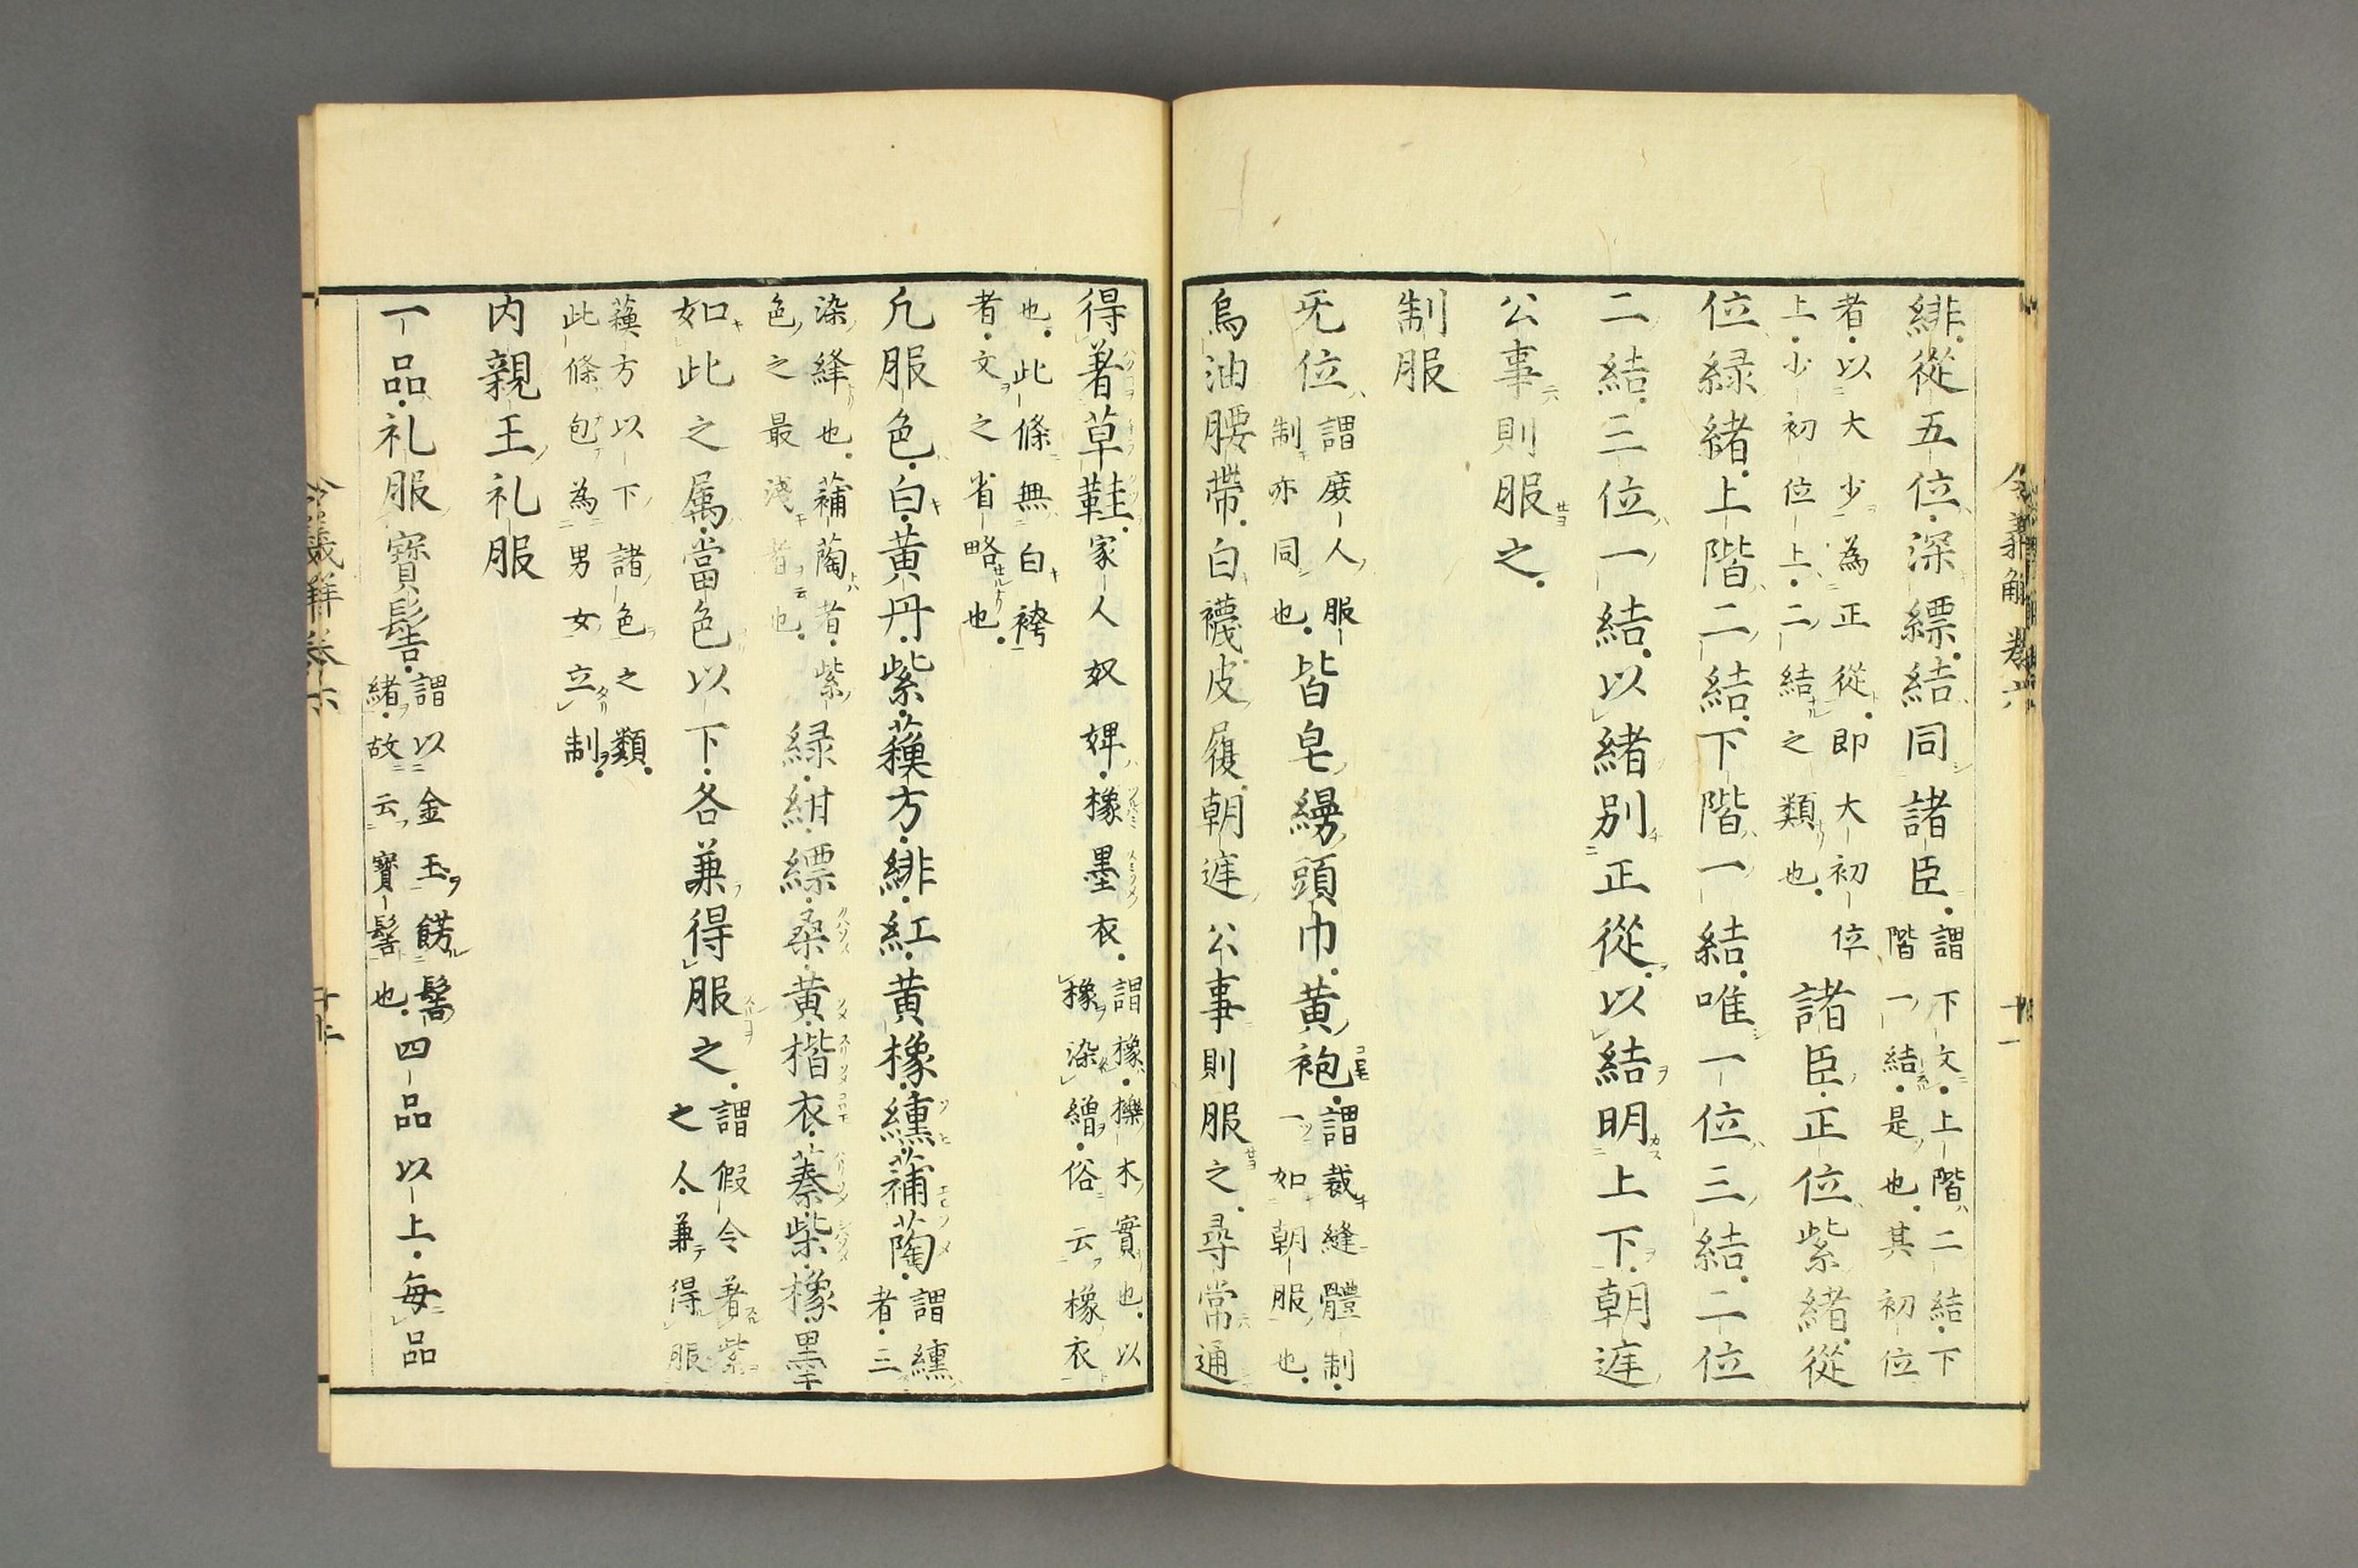 緋從五位深縹結同諸臣謂下文上階二結下
階一結是也其初位
者以大少為正從即大初位
上少初位上二結之類也諸臣正位紫緒從
位緑緒上階二結下階一結唯一位三結二位
二結三位一結以緒別正從以結明上下朝迋
公事則服之
制服
无位謂庻人服
制亦同也皆皂縵頭巾黄袍謂裁縫體制
一如朝服也
烏油腰帶白襪皮履朝迋公事則服之尋常通
得著草鞋家人奴婢橡墨衣謂橡櫟木實也以
橡染繒俗云橡衣
也此條無白袴
者文之省略也
凢服色白黄丹紫蘓方緋紅黄橡纁蒲萄謂纁
者三
染絳也蒲萄者紫
色之最淺者也緑紺縹桑黄楷衣蓁柴橡墨
如此之属當色以下各兼得服之謂假令著紫
之人兼得服
蘓方以下諸色之類
此條包為男女立制
内親王礼服
一品礼服寳髻謂以金玉餝髻
緒故云寳髻也四品以上毎品
令義解卷六
十一